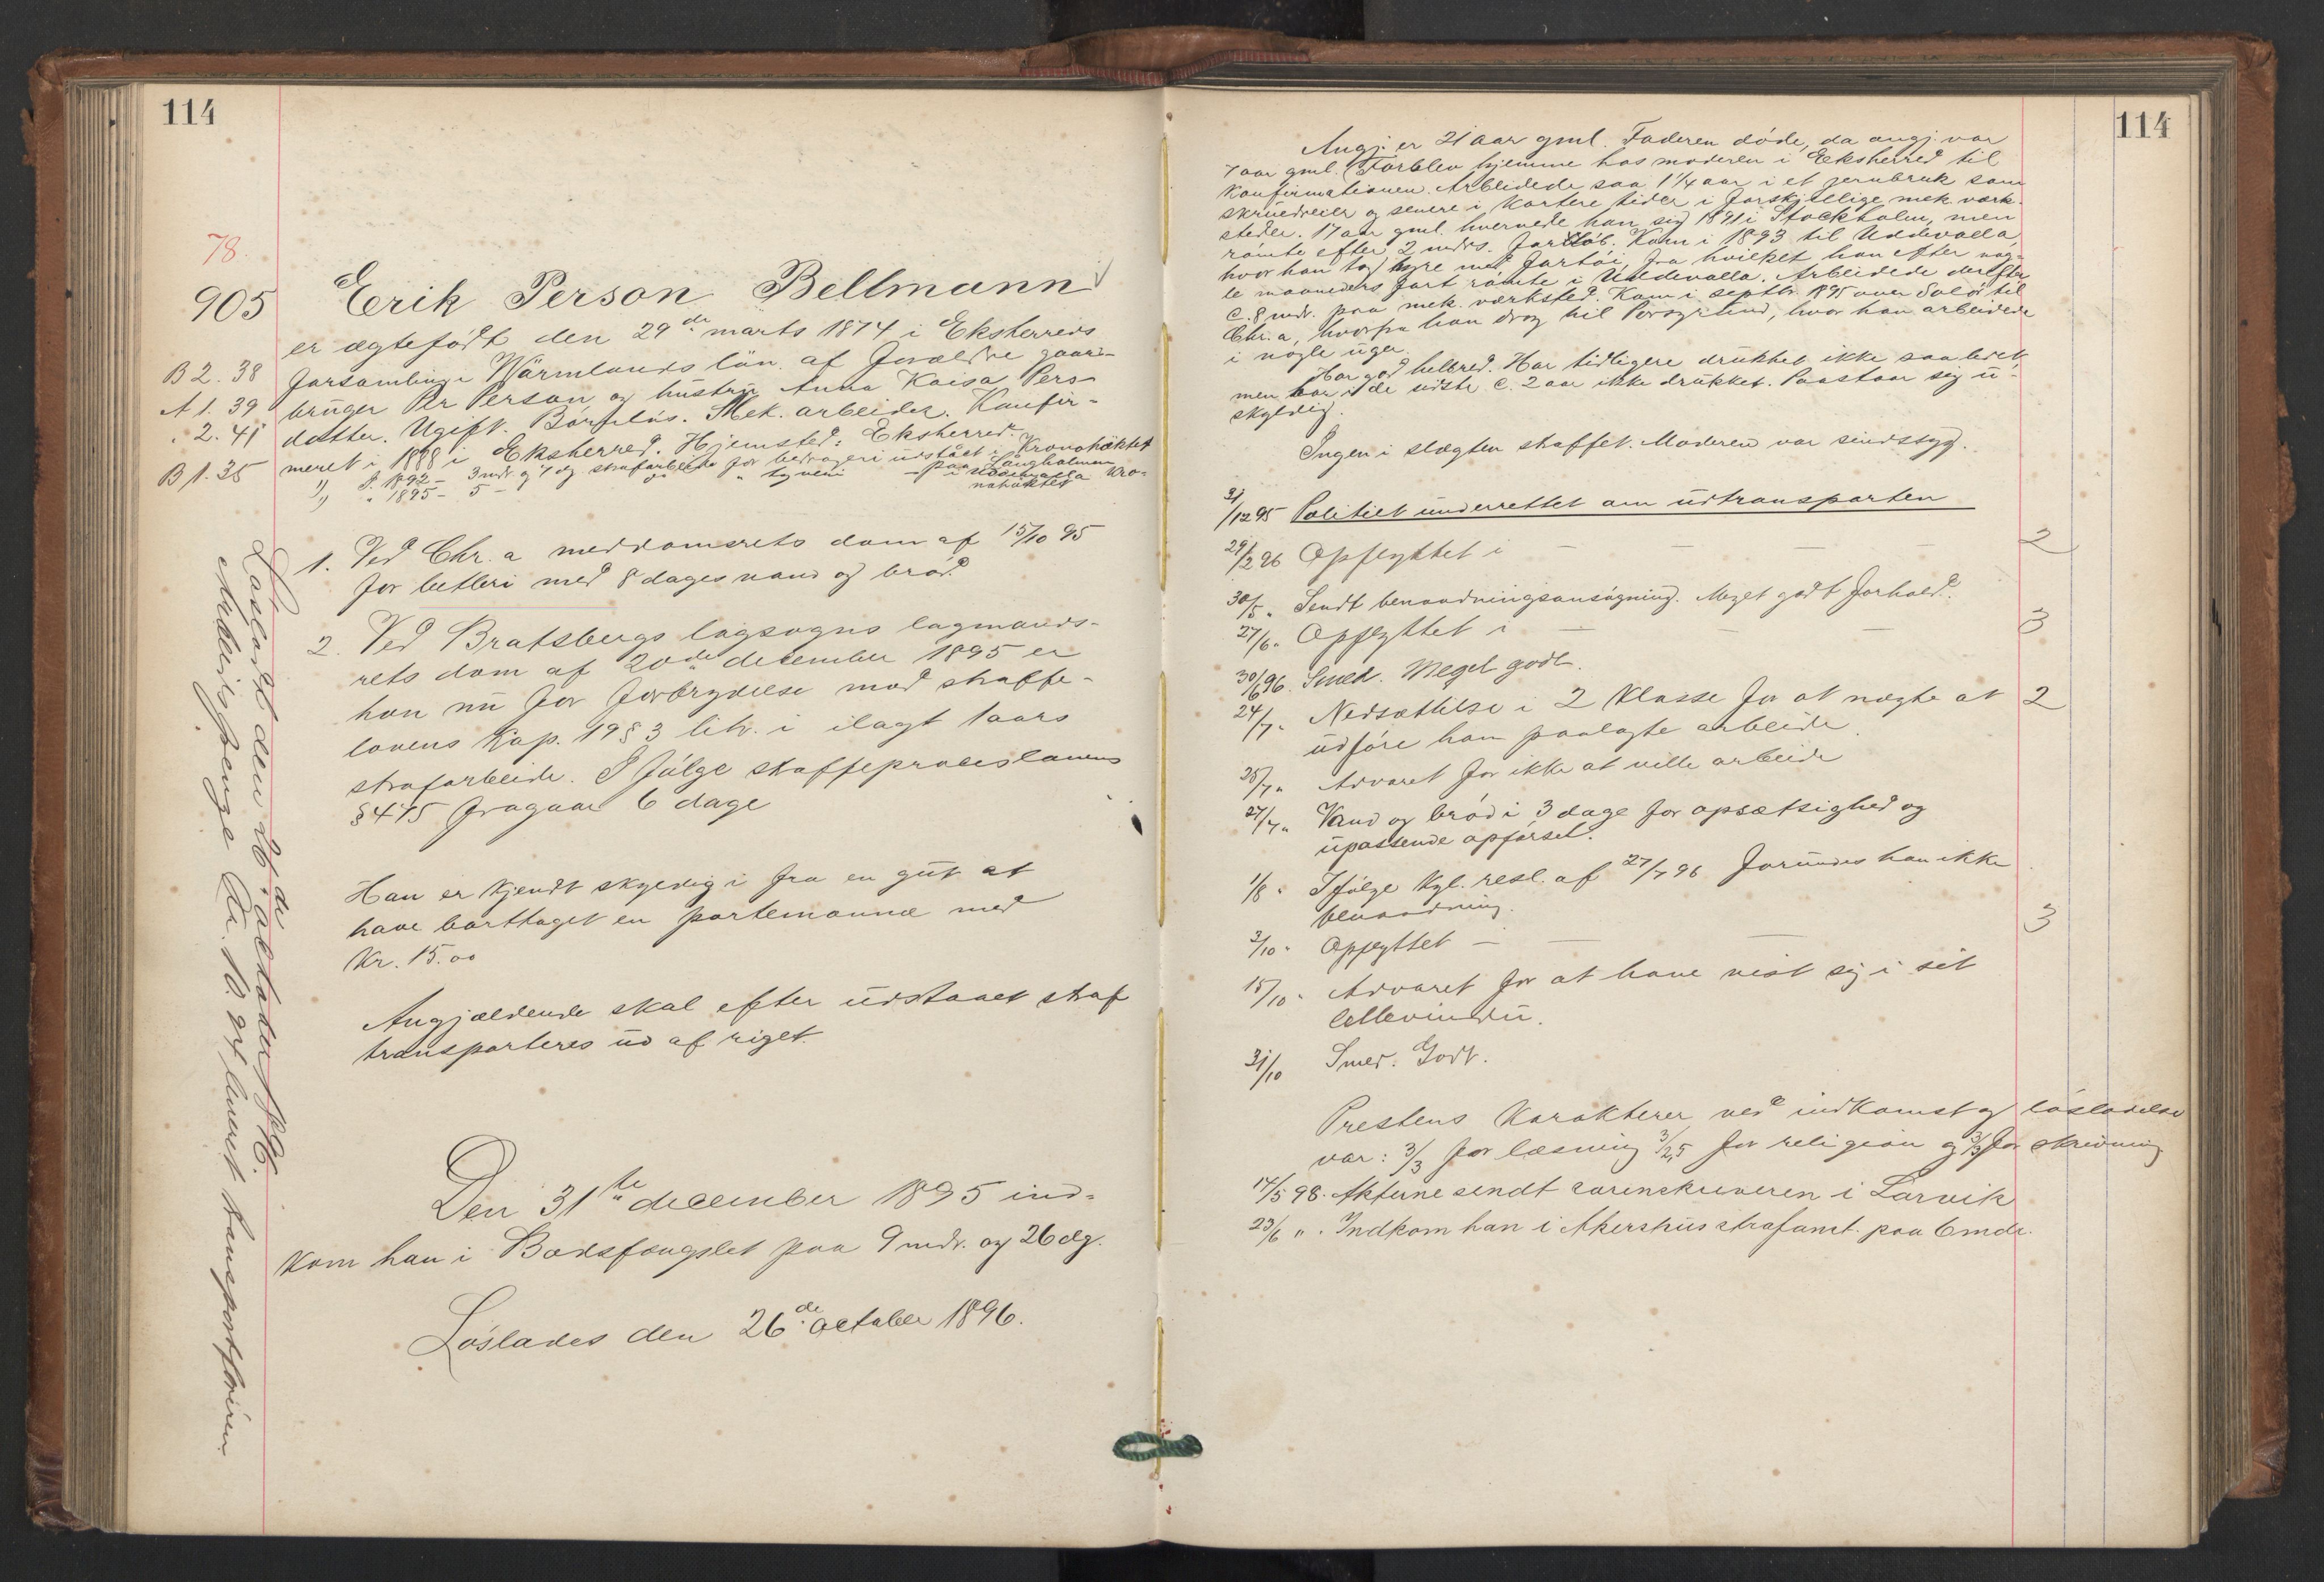 114
78.
905
Erik Person Bellmann
er ægtefødt den 29de marts 1874 i Eksherreds
B 2. 38
forsamling i Wärmlands län af forældre gaard-
A 1. 39
bruger Per Person og hustru Anna Kaisa Pers-
" 2. 41
datter. Ugift. Barnløs. Mek. arbeider. Konfir-
B 1. 35
meret i 1888 i Eksherred. Hjemsted: Eksherred.
1) I 1892 – 3 mdr og 7 dg strafarbeide for bedrageri udstået i Kronohäktet paa Långholmen
2) " 1895 – 5 – " tyveri – i Uddevalla Kro-
nohäktet
1. Ved Chr.a meddomsrets dom af 15/10 95
for betleri med 8 dages vand og brød.
2. Ved Bratsbergs lagsogns lagmands-
rets dom af 20de december 1895 er
han nu for forbrydelse mod straffe-
lovens Kap. 19 § 3 litr. i ilagt 1 aars
strafarbeide. I følge straffeproceslovens
§ 475 fragaar 6 dage
Han er kjendt skyldig i fra en gut at
have borttaget en portemonnæ med
Kr. 15.00
Angjældende skal efter udstaaet straf
transporteres ud af riget.
Den 31te december 1895 ind-
kom han i Bodsfængslet paa 9 mdr. og 26 dg.
Løslades den 26de october 1896.
Løsladt den 26de oktober 96.
Arbeidspenge Kr. 10. leveret transportføreren
114
Angj. er 21 aar gml. Faderen døde, da angj. var
7 aar gml. Forblev hjemme hos moderen i Eeksherred til
konfirmationen. Arbeidede saa 1 1/4 aar i et jernbruk som
skruedreier og senere i kortere tider i forskjellige mek værk-
steder. 17 aar gml. hvervede han sig 1891 i Stockholm, men
rømte efter 2 mdrs. forløb. Kom i 1893 til Uddevalla,
hvor han tog hyre med fartøi, fra hvilket han efter nog-
le maaneders fart rømte i Uddevalla. Arbeidede derefter
c. 8 mdr. paa mek. værksted. Kom i septbr. 1895 over Solør til
Chr.a, hvorfra han drog til Porsgrund, hvor han arbeidede
i nogle uger.
Har god helbred. Har tidligere drukket ikke saa lidet,
men har i de sidste c. 2 aar ikke drukket. Paastaar sig u-
skyldig.
Ingen i slægten straffet. Moderen var sindssyg.
31/12 95 Politiet underrettet om udtransporten
29/2 96 Opflyttet i — — — 2
30/5 " Sendt benaadningsansøgning. Meget godt forhold.
27/6 " Opflyttet i — — — 3
30/6 96. Smed. Meget godt.
24/7 " Nedsættelse i 2 Klasse for at nægte at 2
udføre ham paalagte arbeide.
25/7 " Advaret for ikke at ville arbeide
27/7 " Vand og brød i 3 dage for opsætsighed og
upassende opførsel.
1/8 " Ifølge Kgl. resl. af 27/7 96 forundes han ikke
benaadning.
3/10 " Opflyttet — — — 3
15/10 " Advaret for at have vist sig i sit
cellevindu.
31/10 Smed. Godt.
Prestens Karakterer ved indkomst og løsladelse
var: 3/3 for læsning 3/2,5 for religion og 3/3 for skrivning
17/5 98. Akterne sendt sorenskriveren i Larvik
23/6 " . Indkom han i Akershus strafanst. paa 6 mdr.